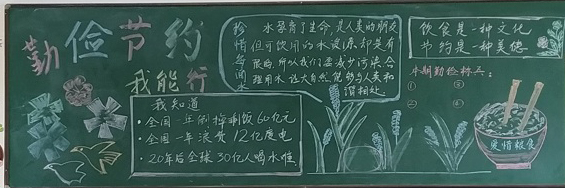 勤俭节约
我能行
我知道
·全国一年倒掉剩饭60亿元
·全国一年浪费12亿度电
·20年后全球30亿人喝水难
珍惜每滴水
水孕育了生命,是人类的朋友
但可饮用的水资源却是有
限的,所以我们要减少污染,合
理用水,让大自然能够与人类和
谐相处
饮食是一种文化
节约是一种美德
本期勤俭标兵:
① ③
② ④
爱惜粮食